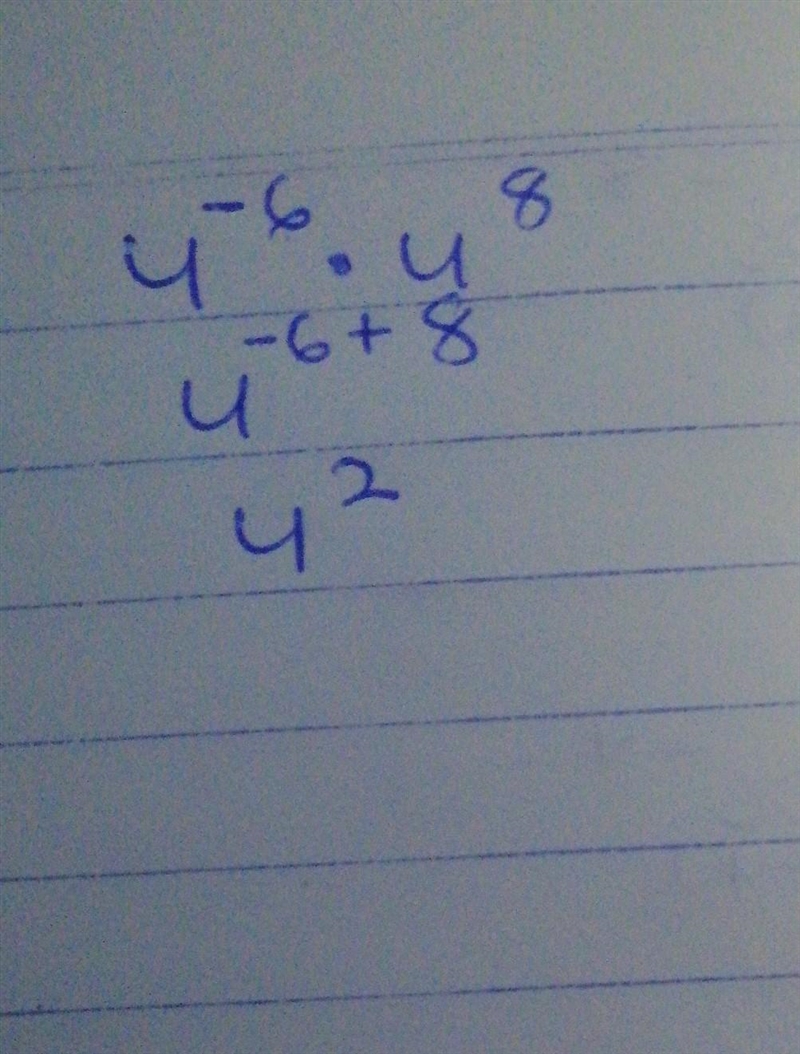 4⁻⁶ · 4⁸
4⁻⁶⁺⁸
4²